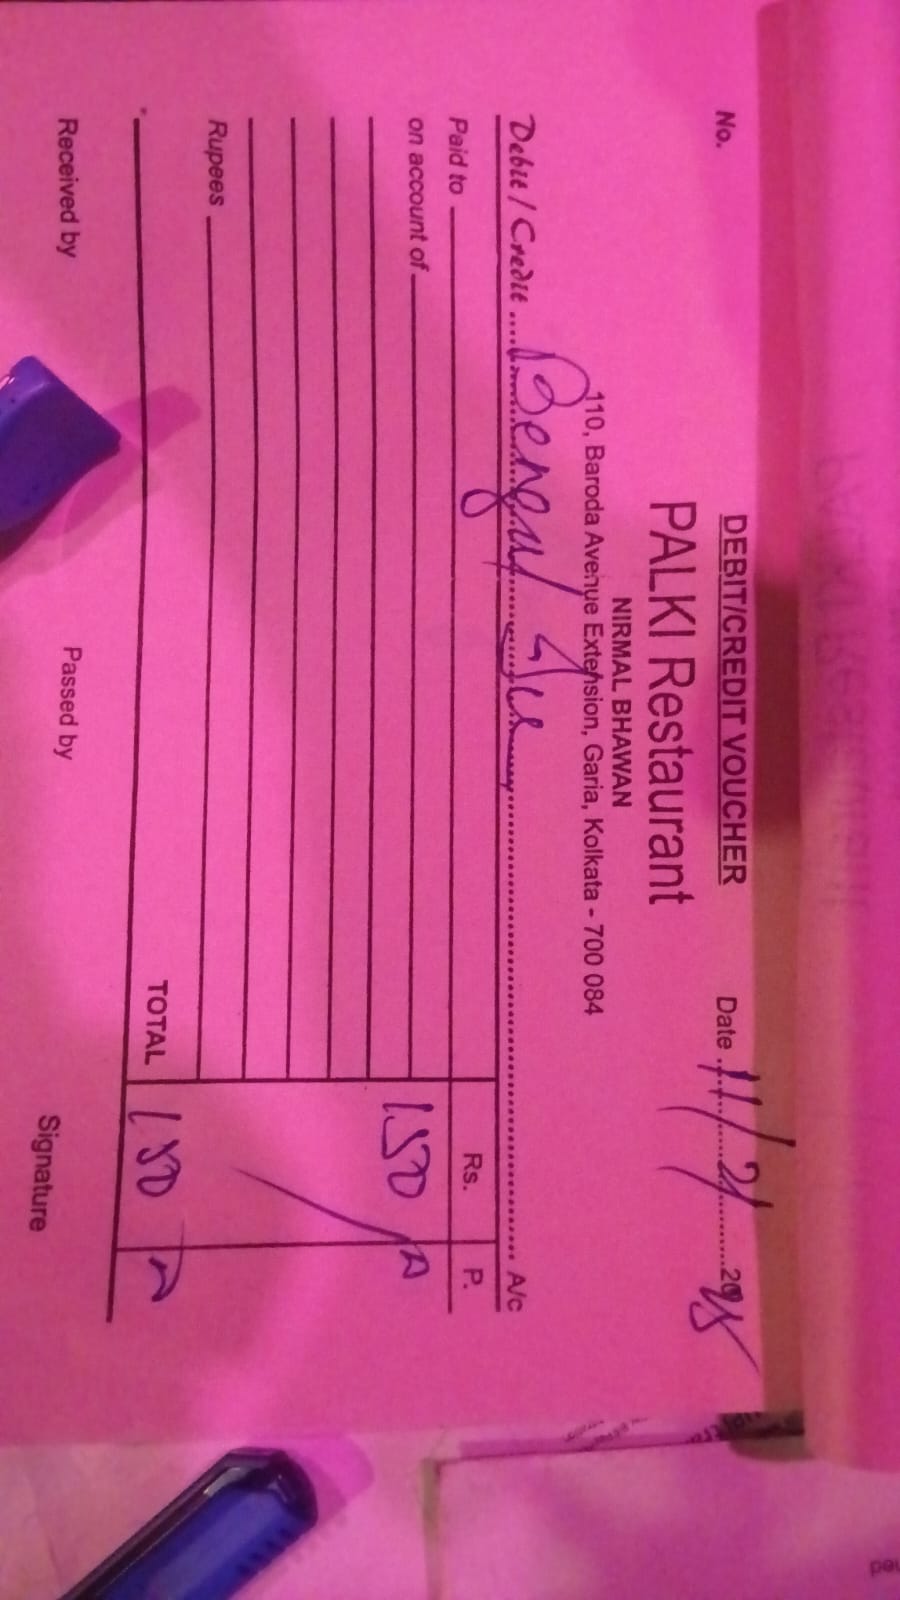 DEBIT/CREDIT VOUCHER
No. Date 11/21 20
PALKI Restaurant
NIRMAL BHAWAN
110, Baroda Avenue Extension, Garia, Kolkata - 700 084
Debit / Credit Bengal A/c
Paid to Rs. P.
on account of 150
Rupees
TOTAL 150
Received by Passed by Signature